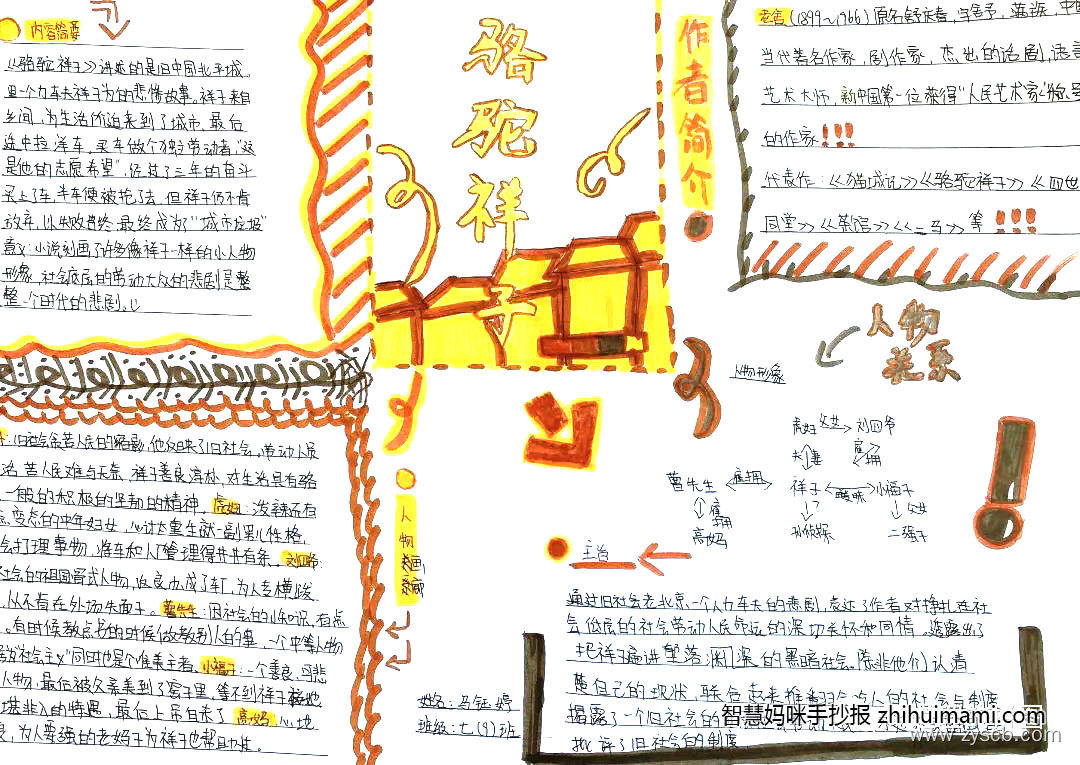 内容简要
《骆驼祥子》讲述的是旧中国北平城
里一个力车夫祥子为的悲惨故事。祥子来自
乡间，为生活所迫来到了城市，最后
途中拉洋车，买车做个独立劳动者，"这
是他的志愿希望"，经过了三年的奋斗
买上了车，半年便被抢了去，但祥子仍不肯
放弃，以失败告终，最终成为"城市垃圾"
意义：小说刻画了许多像祥子一样的小人物
形象，社会底层的劳动大众的悲剧是整
整一个时代的悲剧。
骆
驼
祥
子
作者简介
老舍（1899～1966）原名舒庆春，字舍予，满族，中国
当代著名作家，剧作家，杰出的话剧，语言
艺术大师，新中国第一位获得"人民艺术家"称号
的作家!!!
代表作：《猫城记》《骆驼祥子》《四世
同堂》《茶馆》《二马》等!!!
人物
关系
人物形象
虎妞 父女 刘四爷
夫妻 雇拥
曹先生 雇拥 祥子 暧昧 小福子
雇拥 父女
高妈 孙侦探 二强子
旧社会贫苦人民的缩影，他反映了旧社会，劳动人民
苦人民难与无奈，祥子善良淳朴，对生活具有骆
一般的积极的坚韧的精神，虎妞：泼辣还有
变态的中年妇女，
打理事物，将车和人厂管理得井井有条，刘四爷
社会的 人物， 为人专横
从不肯在外场失面子。曹先生：因社会的 有点
有时候教点书的时候 一个中等人物
社会主义"同时也是个唯美主者。小福子：一个善良，可悲
人物，最后被父亲卖到了窑子里，等不到祥子
的特遇，最后上吊自杀了 高妈 心地
为人要强的老妈子为祥子也帮
人物
姓名：马钰婷
班级：七（9）班
主旨
通过旧社会老北京一个人力车夫的悲剧，表达了作者对挣扎在社
会低层的社会劳动人民命运的深切关怀和同情。透露出了
把祥子逼进堕落 深的黑暗社会。除非他们认清
楚自己的现状，联合起来推翻 人的社会与制度
揭露了一个旧社会的
批评了旧社会的制度
智慧妈咪手抄报 zhihuimami.com
www.zyscb.com